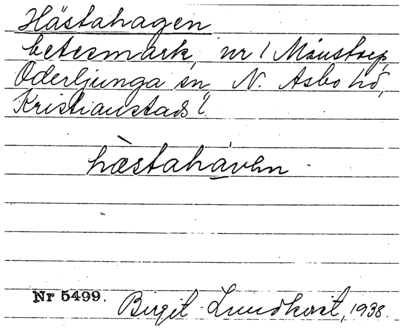 Hästahagen
betesmark, nr 1 Månstorp
Oderljunga sn, N. Åsbo hd,
Kristianstads l.
hæ̀stahávǝn
Nr 5499. Birgit Lundkvist, 1938.